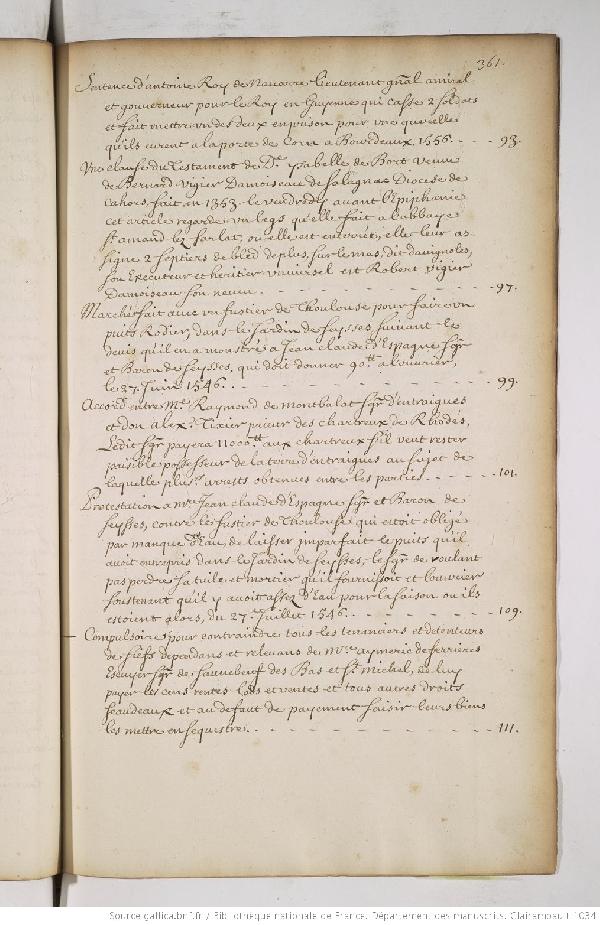 361.
Sentence d'antoine Roy de Navarre lieutenant gñal amiral
et gouverneur pour le Roy en Guyenne qui casse 2 soldats
et fait mettre un des deux en prison pour une querelle
qu'ils eurent a la porte de Corn a Bourdeaux 1556. - - - 93.
Une clause du Testament de De. ysabelle de Bort veuve
de Bernard vigier Damoiseau de Salagnac Diocese de
Cahors, fait en 1363. le vendredy avant l'Epiphanie
cet article regarde un legs qu'elle fait a l'abbaye
St. amand lez Sarlat, ou elle est enterrée, elle leur as
signe 2 septiers de bled de plus, sur le mas, dit
son Executeur et heritier universel est Robert vigier
Damoiseau son neveu - - - - - - 97.
Marché fait avec un fustier de Thoulouse pour faire un
puits Rodier, dans le Jardin de Seysses, suivant le
devis qu'il en a monstré a Jean claude d'Espagne Sgr.
et Baron de Seysses, qui doit donner 90tt a l'ouvrier,
le 27. Juin 1546. - - - - - - 99.
Accord entre Me. Raymond de Montbalat Sgr. d'entraigues
et don alex. Tixier prieur des chartreux de Rhodés,
Ledit Sgr. payera 11000tt aux chartreux s'il veut rester
paisible possesseur de la terre d'entraigues au sujet de
laquelle plusrs. arrests obtenues entre les parties. - - - 101.
Protestation a mre. Jean claude d'Espagne Sgr. et Baron de
Seysses, contre le fustier de Thoulouse qui estoit obligé
par manque d'Eau, de laisser imparfait le puits qu'il
avoit entrepris dans le Jardin de Seysses, le Sgr. de voulant
pas perdre sa tuile et mortier qu'il fournissoit et l'ouvrier
soustenant qu'il y avoit assez d'Eau pour la saison ou ils
estoient alors, du 27. Juillet 1546. - - - - 109.
Compulsoire pour contraindre tous les tenanciers et detenteurs
de fiefs dependans et relevans de Mre. aymeric de ferrieres
Escuyer Sgr. de Sauvebeuf des Bas et St. Michel, de luy
payer les cens rentes lods et ventes et tous autres droits
feaudeaux et au defaut de payement saisir leurs biens
les mettre en sequistre. - - - - - - 111.
Source gallica.bnf.fr / Bibliothèque nationale de France. Département des manuscrits. Clairambault 1034